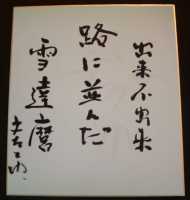 出来不出来
路に並んだ
雪達磨